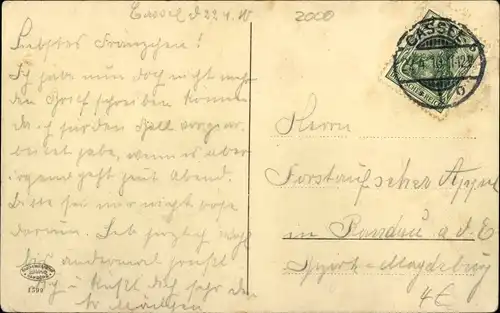 Cassel d 22.4.
2000
Liebstes Fränzchen!
Ich habe nun doch nicht mehr
den Brief schreiben können
da ich für den Ball vorgear-
beitet habe, wenn es aber
irgend geht heut Abend.
Bitte sei nur nicht böse
darum. Leb herzlich wohl
andermal
Ich küsst Dich sehr
CASSEL
Herrn
Forstaufseher
in Randau a.d.E
Bezirk-Magdeburg
4€
1399